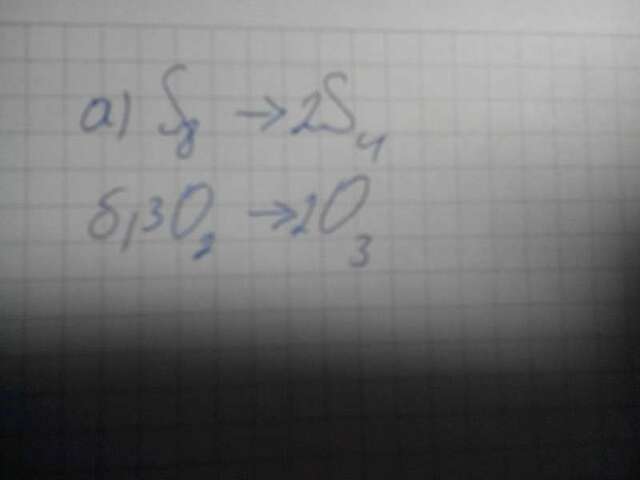 а) S₈ → 2S₄
б) 3O₂ → 2O₃